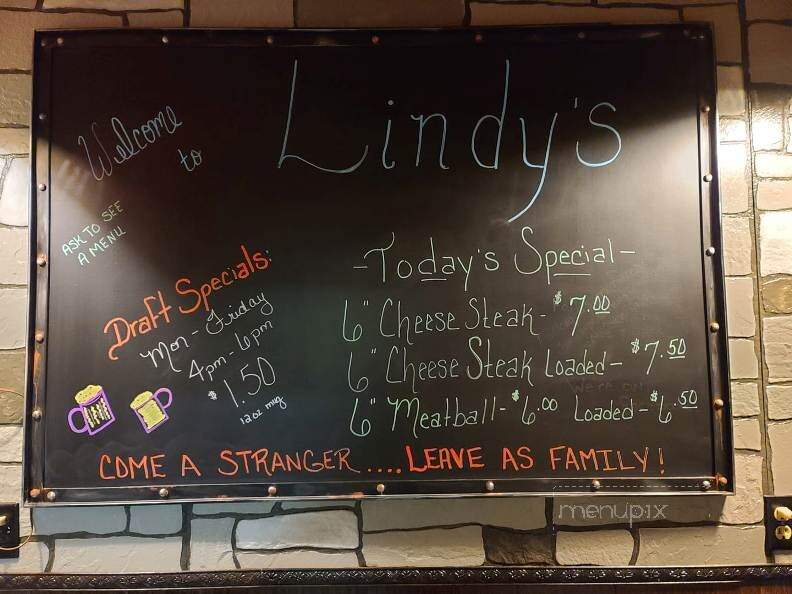 Welcome
to
Lindy's
ASK TO SEE
A MENU
Draft Specials:
Mon - Friday
4pm - 6pm
$1.50
12oz mug
-Today's Special-
6" Cheese Steak - $7.00
6" Cheese Steak Loaded - $7.50
6" Meatball - $6.00 Loaded - $6.50
COME A STRANGER .... LEAVE AS FAMILY!
menupix